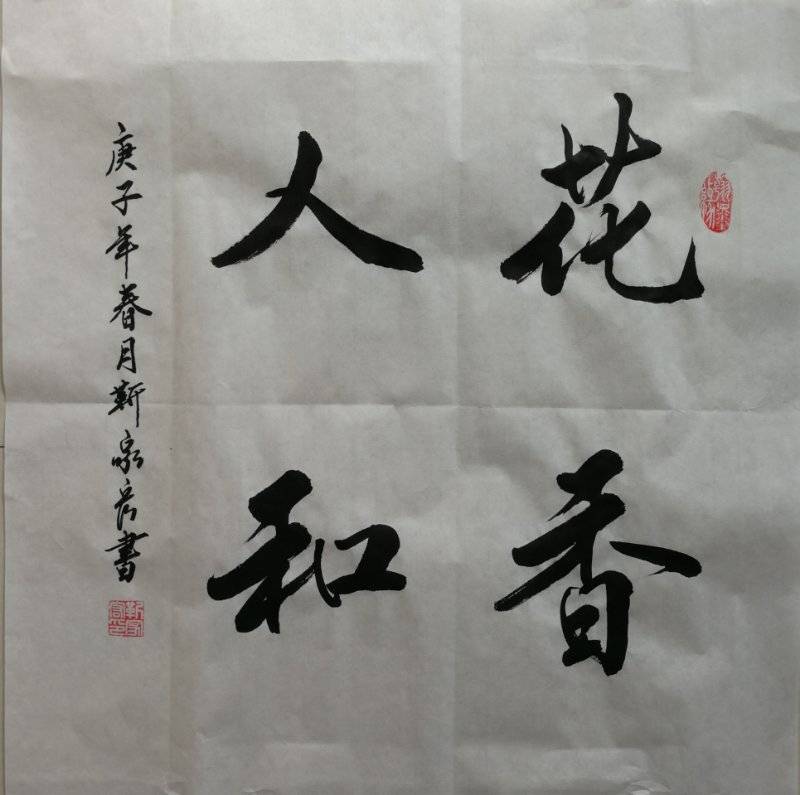 花香
人和
庚子年春月靳家彦書